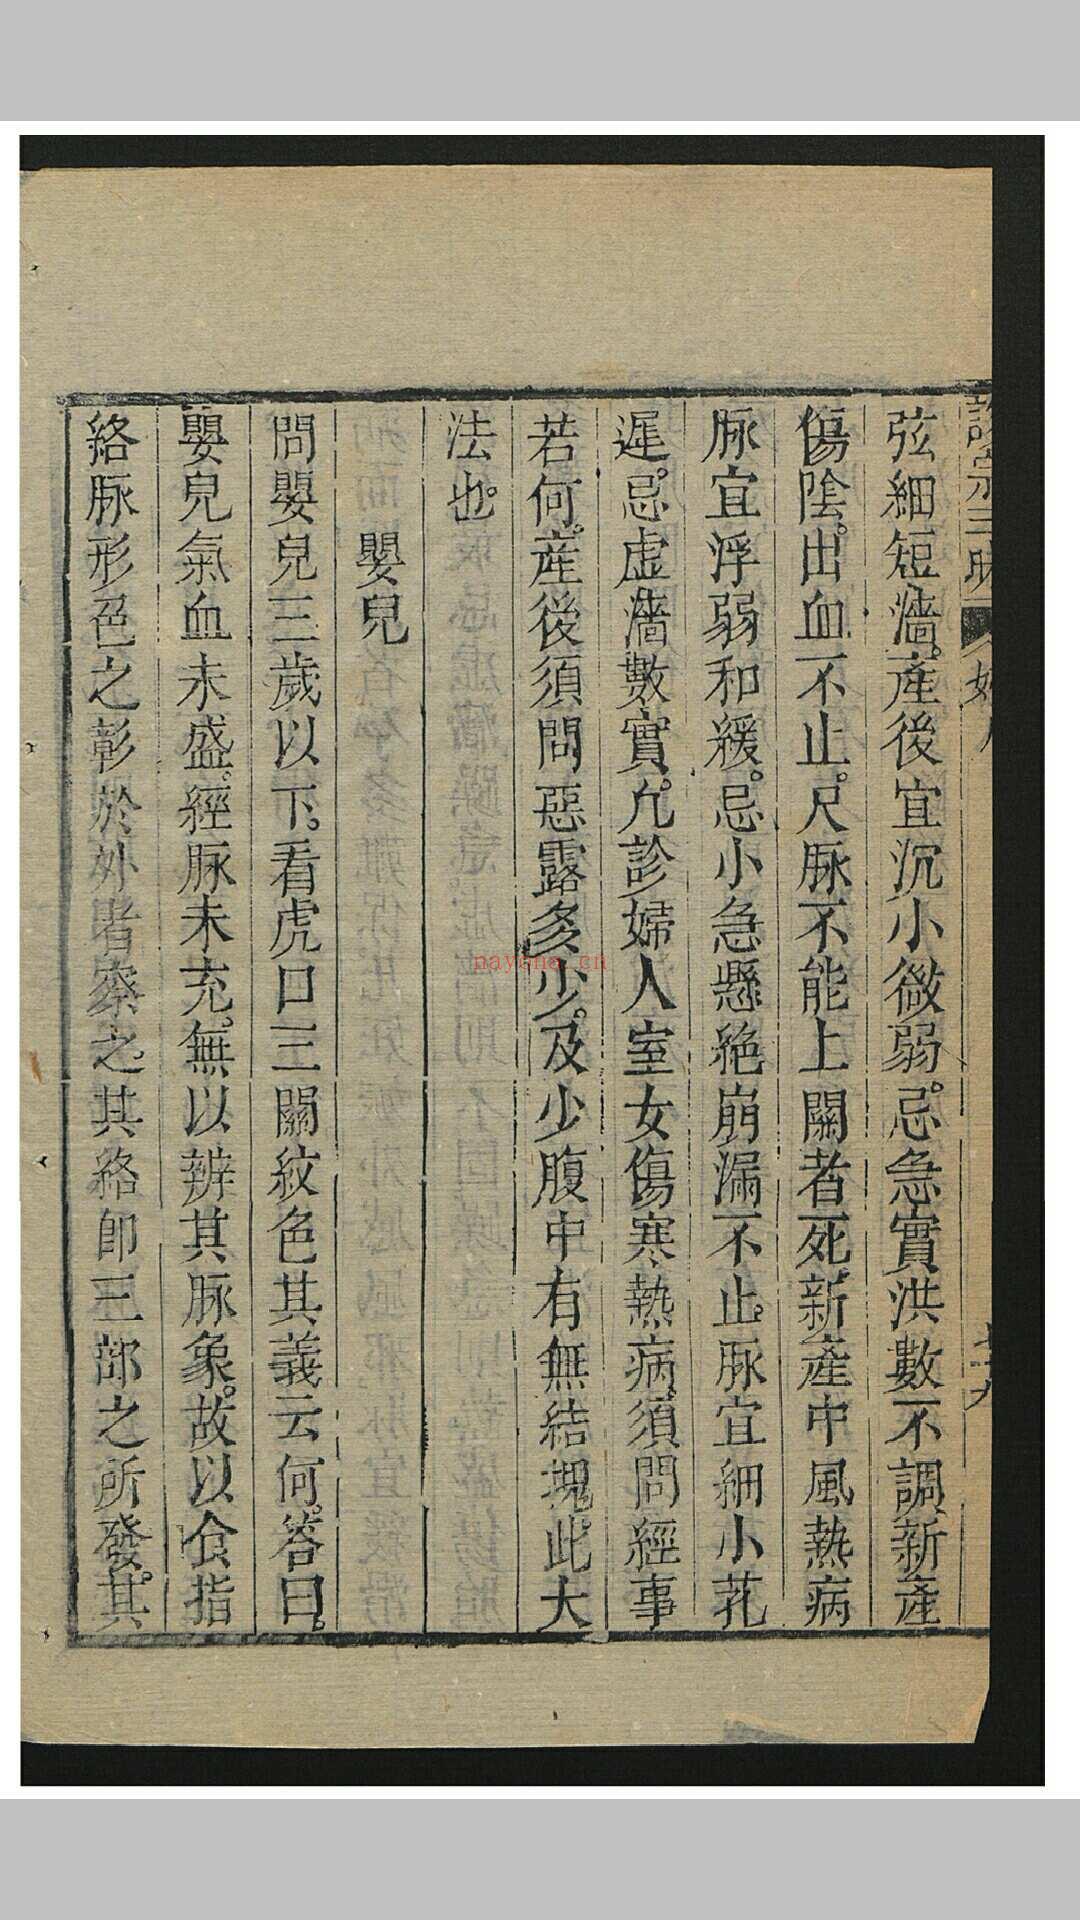 弦細短濇。產後宜沉小微弱。忌急實洪數不調。新產
傷陰。出血不止。尺脉不能上關者死。新產中風熱病
脉宜浮弱和緩。忌小急懸絕。崩漏不止。脉宜細小芤
遲。忌虛濇數實。凡診婦人室女傷寒熱病。須問經事
若何。產後須問惡露多少。及少腹中有無結塊。此大
法也。
嬰兒
問嬰兒三歲以下。看虎口三關紋色其義云何。答曰。
嬰兒氣血未盛。經脉未充。無以辨其脉象。故以食指
絡脉形色之彰於外者察之其絡即三部之所發。其
nayona.cn